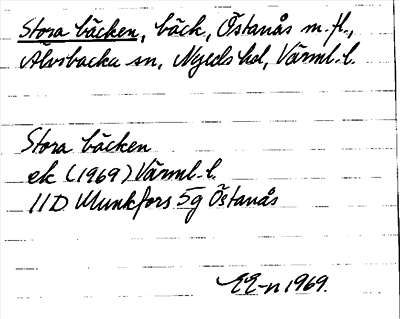 Stora bäcken, bäck, Östanås m.fl.,
Älvsbacka sn, Nyeds hd, Värml. l.
Stora bäcken
ek (1969) Värml. l.
11D Munkfors 5g Östanås
EE-n 1969.